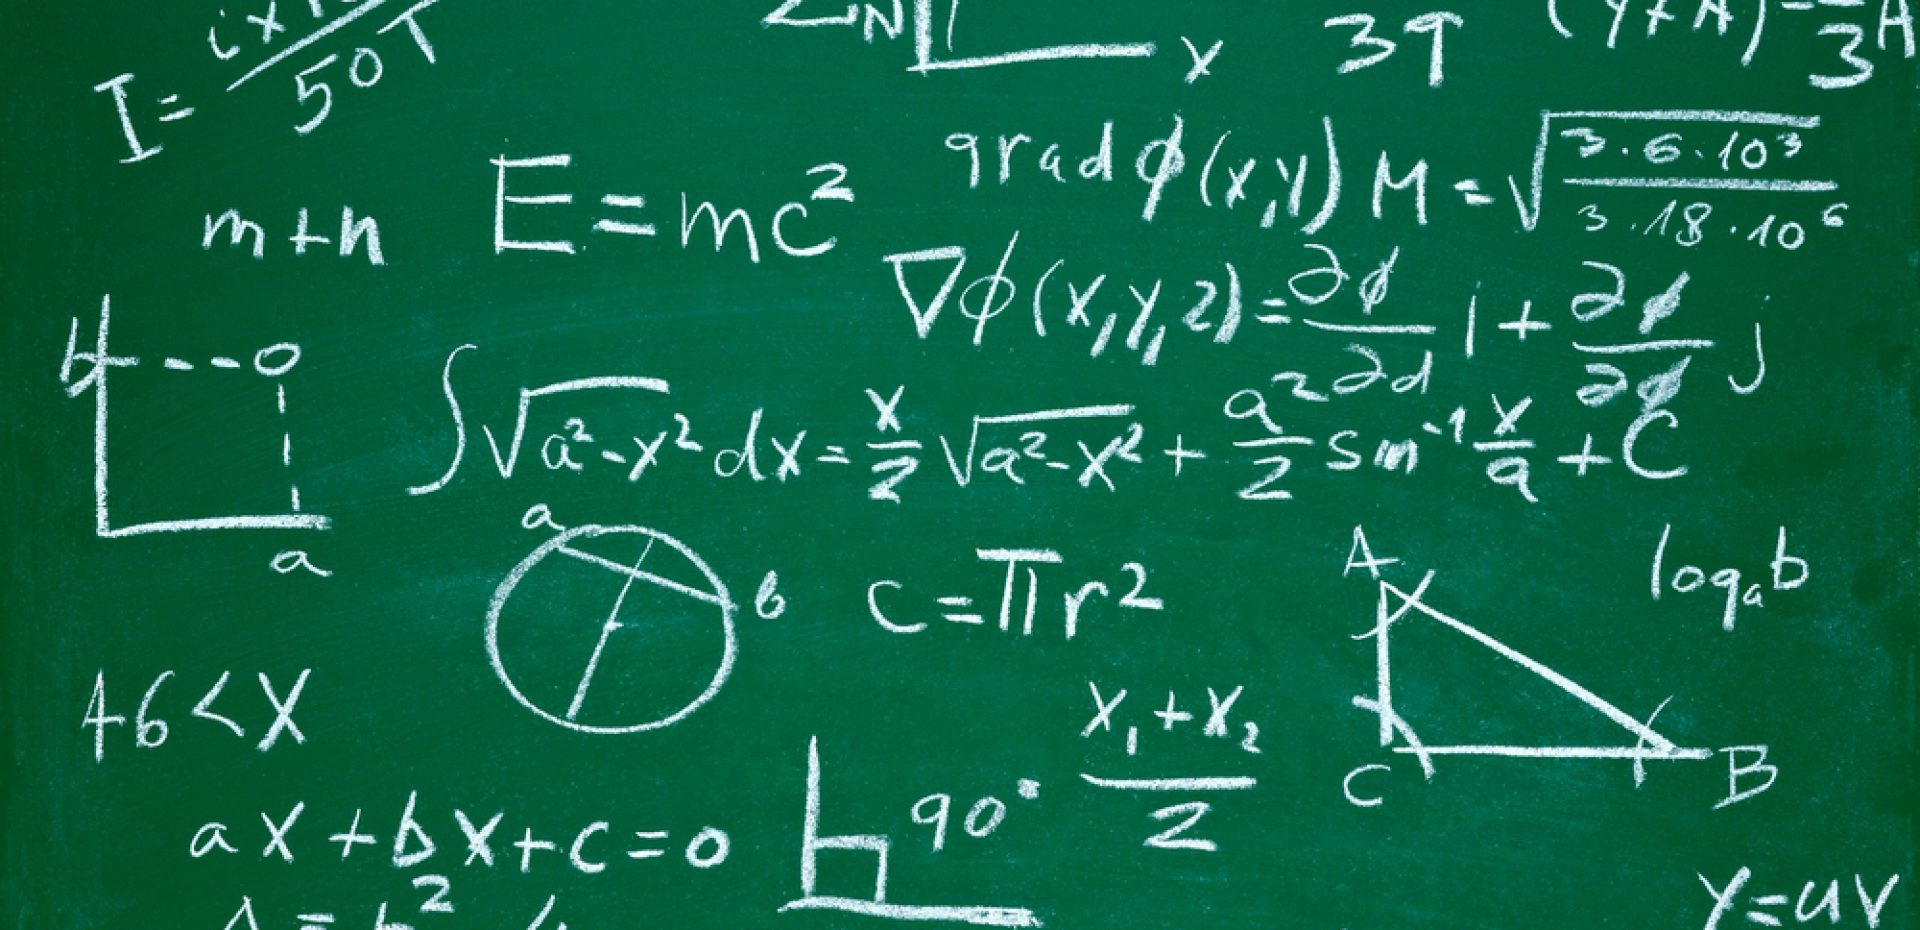 I =
50T
N
x
3
m+n
E=mc²
grad ϕ(x,y) M=√(3·6·10³/3·18·10⁶)
∇ϕ(x,y,2)=∂ϕ/∂d i+∂ϕ/∂ϕ j
b
o
a
∫√a²-x² dx=x/2 √a²-x²+a²/2 sin⁻¹ x/a +C
a
b
c=πr²
A
C
B
logₐb
+6<x
x₁+x₂
2
ax+bx+c=0
90°
y=uv